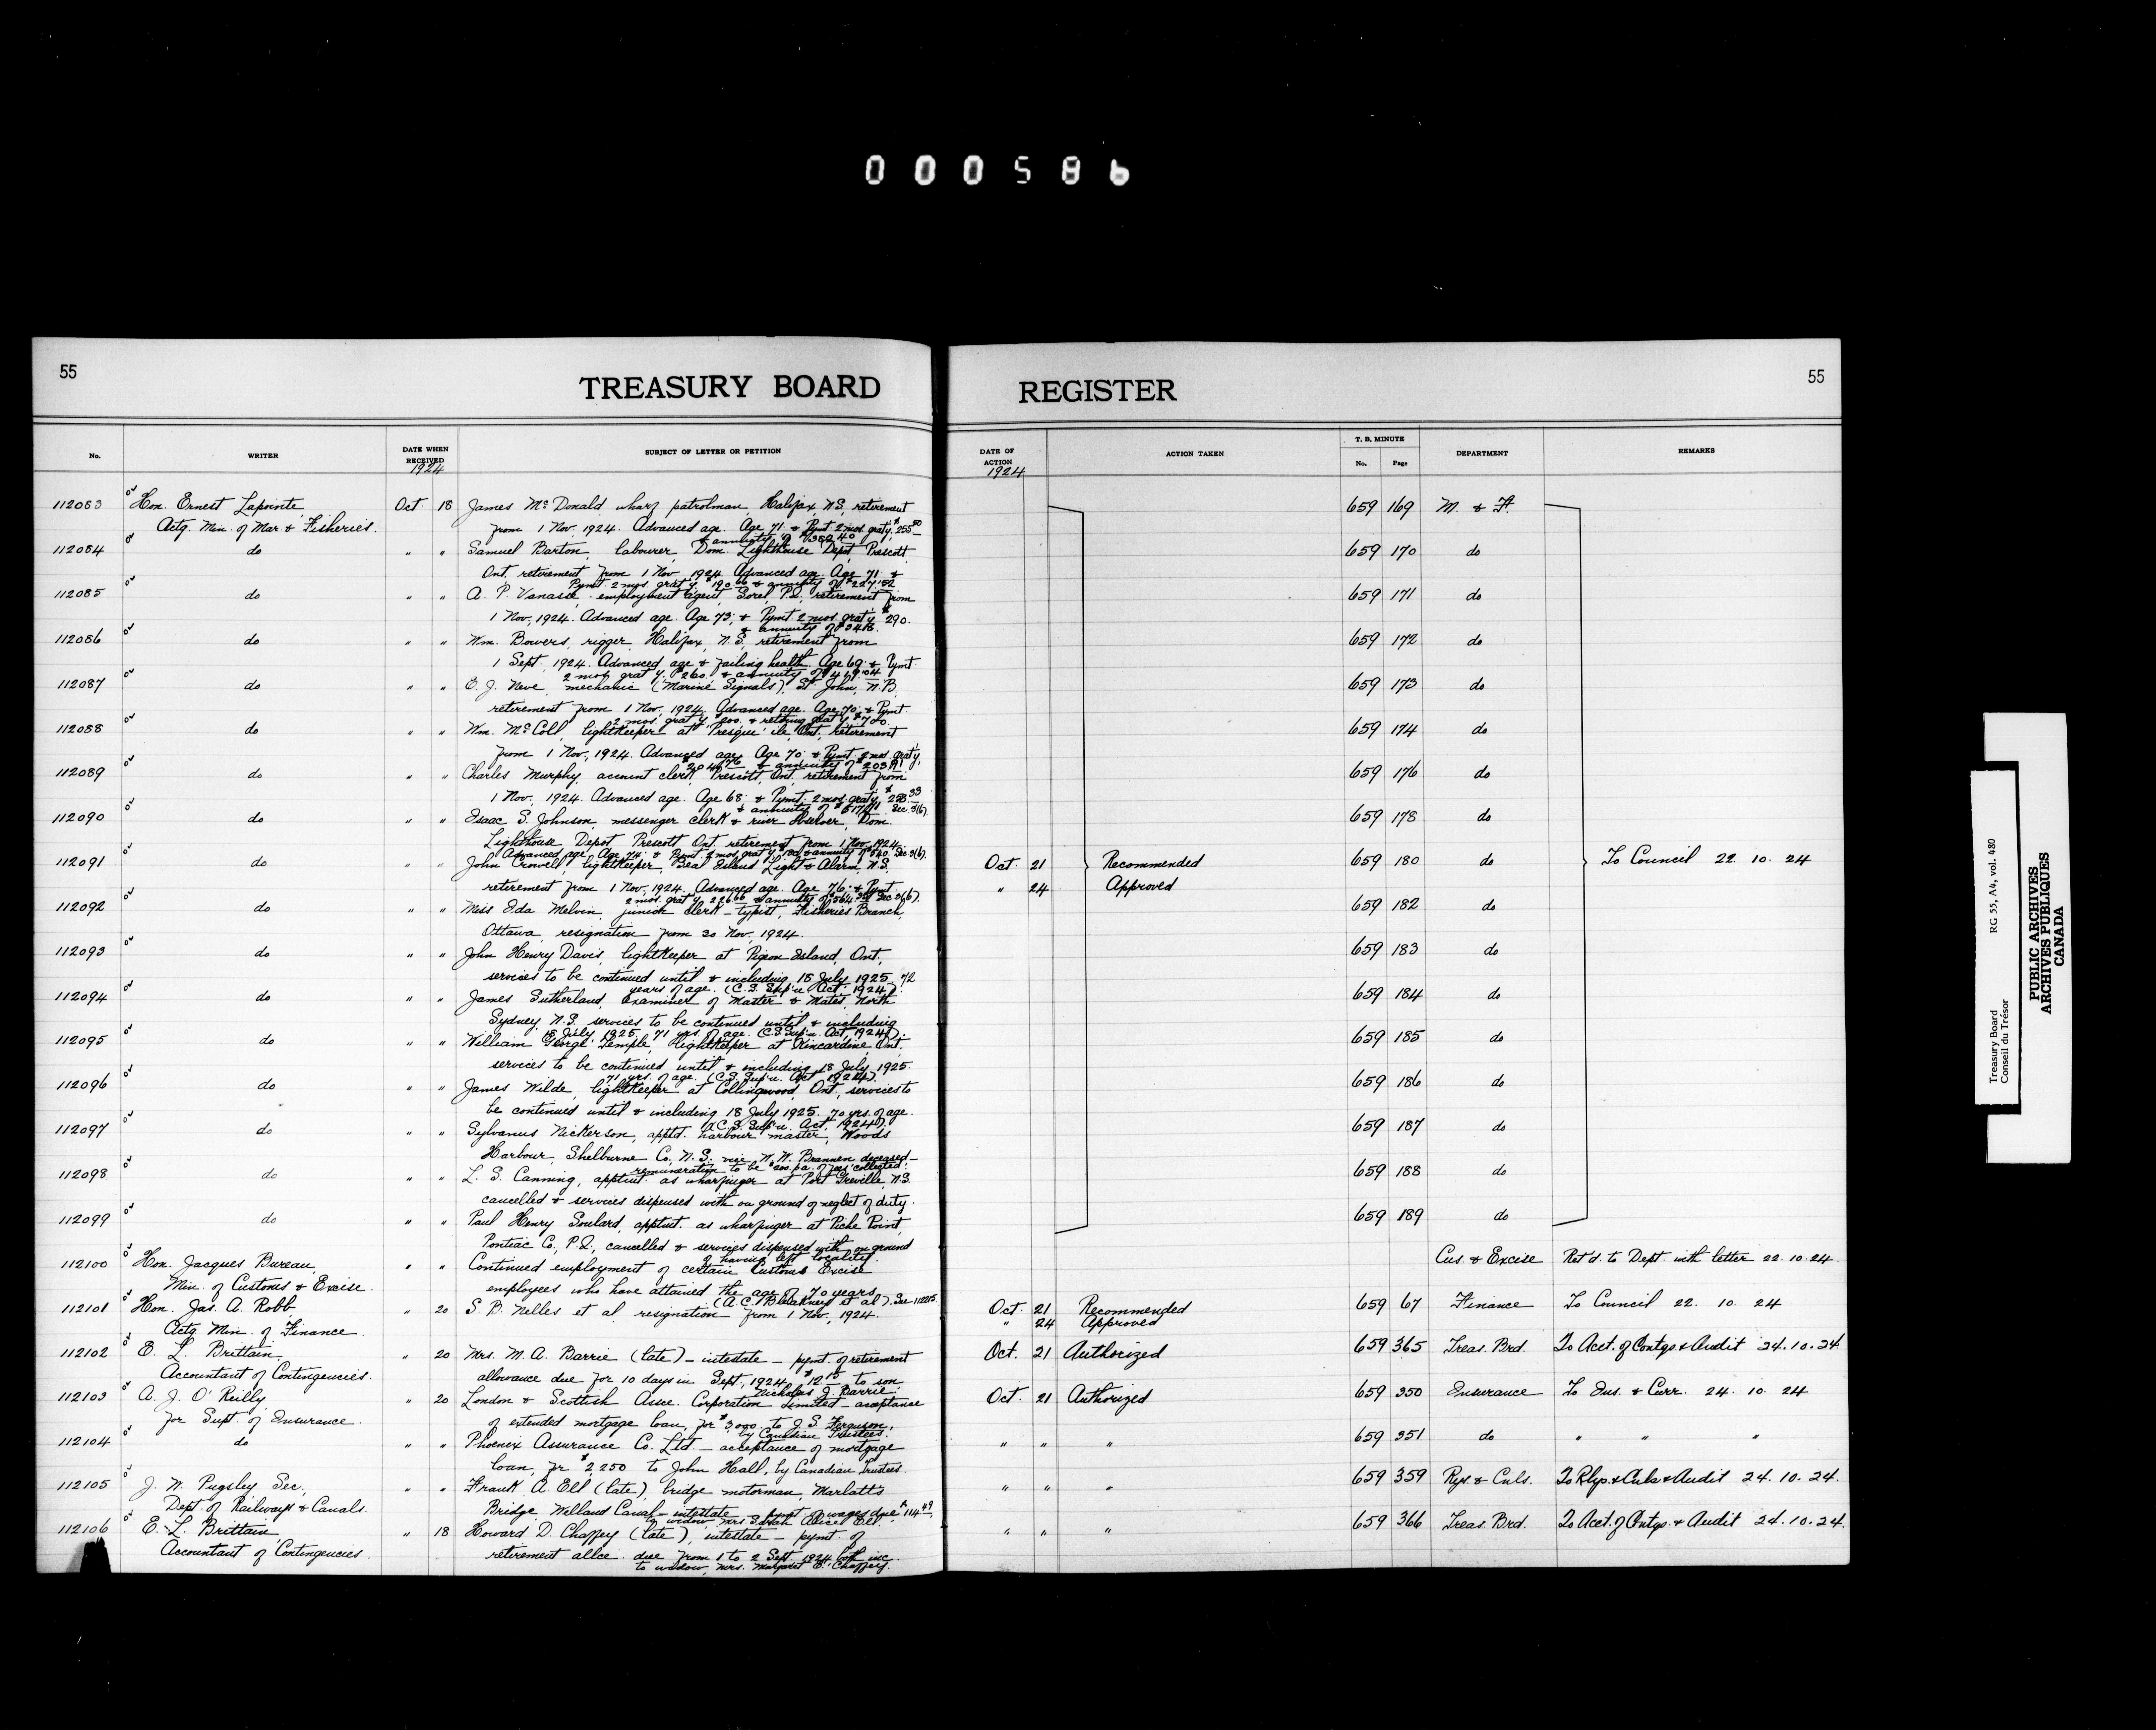 000586
55
TREASURY BOARD
REGISTER
55
No.
WRITER
DATE WHEN RECEIVED
1924
SUBJECT OF LETTER OR PETITION
DATE OF ACTION
1924
ACTION TAKEN
T. B. MINUTE
No.
Page
DEPARTMENT
REMARKS
112083 Hon. Ernest Lapointe, Oct. 18 James McDonald wharf patrolman, Halifax, N.S. retirement 659 169 M. & F.
Actg. Min. of Mar. & Fisheries. from 1 Nov. 1924. Advanced age. Age 71. & Pymt. 2 mos. graty. $255
& annuity of
112084 do " " Samuel Barton, labourer, Dom. Lighthouse Depot Prescott 659 170 do
Ont. retirement from 1 Nov. 1924. Advanced age. Age 71 &
Pymt. 2 mos. grat'y. & annuity of
112085 do " " A. P. Vanasse, employment agent Sorel, P.Q. retirement from 659 171 do
1 Nov. 1924. Advanced age. Age 73; & Pymt 2 mos. grat'y. $290.
& annuity of
112086 do " " Wm. Bowers, rigger, Halifax, N.S. retirement from 659 172 do
1 Sept. 1924. Advanced age & failing health. Age 69. & Pymt.
2 mos. grat'y. $260. & annuity of
112087 do " " E. J. Neve, mechanic (Marine Signals), St. John, N.B. 659 173 do
retirement from 1 Nov. 1924. Advanced age. Age 70; & Pymt.
2 mos. grat'y $200. & retiring grat'y $700.
112088 do " " Wm. McColl, lightkeeper at Presqu'ile, Ont., retirement 659 174 do
from 1 Nov., 1924. Advanced age. Age 70. & Pymt. 2 mos. grat'y,
& annuity of
112089 do " " Charles Murphy, account clerk, Prescott, Ont. retirement from 659 176 do
1 Nov. 1924. Advanced age. Age 68. & Pymt. 2 mos. graty.
& annuity of Sec. 3(6).
112090 do " " Isaac S. Johnson, messenger clerk & river Observer, Dom. 659 178 do
Lighthouse Depot Prescott Ont. retirement from 1 Nov. 1924.
Advanced age. Age 74 & Pymt. 2 mos. grat'y & annuity of Sec. 3(6).
112091 do " " John Crowell, lightkeeper, Seal Island Light & Alarm, N.S. Oct. 21 Recommended 659 180 do To Council 22. 10. 24
retirement from 1 Nov. 1924. Advanced age. Age 76. & Pymt. " 24 Approved
2 mos. grat'y & annuity of Sec 3(6).
112092 do " " Miss Ida Melvin, junior clerk-typist, Fisheries Branch, 659 182 do
Ottawa, resignation from 30 Nov. 1924.
112093 do " " John Henry Davis, lightkeeper at Pigeon Island, Ont., 659 183 do
services to be continued until & including 18 July 1925, 72
years of age. (C.S. Sup'n Act, 1924).
112094 do " " James Sutherland, Examiner of Master & Mates North 659 184 do
Sydney, N.S. services to be continued until & including
18 July, 1925, 71 yrs. of age. (C.S. Sup'n. Act, 1924).
112095 do " " William George Temple, lightkeeper at Kincardine Ont. 659 185 do
services to be continued until & including 18 July 1925.
71 yrs. of age. (C.S. Sup'n. Act 1924).
112096 do " " James Wilde, lightkeeper at Collingwood, Ont., services to 659 186 do
be continued until & including 18 July 1925. 70 yrs. of age.
(C.S. Sup'n. Act, 1924).
112097 do " " Sylvanus Nickerson, apptd. harbour master, Woods 659 187 do
Harbour, Shelburne Co., N.S. vice N. W. Brannen deceased—
remuneration to be $200. p.a. of fees collected.
112098 do " " L. S. Canning, apptmt. as wharfinger at Port Greville, N.S. 659 188 do
cancelled & services dispensed with on ground of neglect of duty.
112099 do " " Paul Henry Soulard, apptmt. as wharfinger at Piche Point, 659 189 do
Pontiac Co., P.Q., cancelled & services dispensed with on ground
of having left locality.
112100 Hon. Jacques Bureau, " " Continued employment of certain Customs Excise Cus. & Excise Ret'd. to Dept. with letter 22.10.24.
Min. of Customs & Excise. employees who have attained the age of 70 years
(A. C. Blakney et al). See 112215.
112101 Hon. Jas. A. Robb " 20 S. B. Nelles et al, resignation from 1 Nov., 1924. Oct. 21 Recommended 659 67 Finance To Council 22. 10. 24
Actg. Min. of Finance. " 24 Approved
112102 E. L. Brittain, " 20 Mrs. M. A. Barrie (late) – intestate – pymt. of retirement Oct. 21 Authorized 659 365 Treas. Brd. To Acct. of Contgs. & Audit 24.10.24
Accountant of Contingencies. allowance due for 10 days in Sept. 1924, $12.15 to son
Nicholas J. Barrie.
112103 A. J. O'Reilly " 20 London & Scottish Assce. Corporation Limited – acceptance Oct. 21 Authorized 659 350 Insurance To Ins. & Curr. 24. 10. 24
for Supt. of Insurance. of extended mortgage loan, for $3,000. to J. S. Ferguson,
by Canadian Trustees.
112104 do " " Phoenix Assurance Co. Ltd. – acceptance of mortgage " " " 659 351 do " " "
loan, for $2,250 to John Hall, by Canadian Trustees.
112105 J. W. Pugsley Sec., " " Frank A. Ell (late) bridge motorman, Marlatt's " " " 659 359 Rys. & Cnls. To Rlys. & Cnls & Audit 24. 10. 24.
Dept. of Railways & Canals. Bridge, Welland Canal – intestate – pymt of wages due $114.49
to widow Mrs. Sarah Alice Ell.
112106 E. L. Brittain, " 18 Howard D. Chaffey (late), intestate – pymt. of " " " 659 366 Treas. Brd. To Acct. of Contgs. & Audit 24.10.24.
Accountant of Contingencies. retirement allce. due from 1 to 2 Sept. 1924, both inc.
to widow, Mrs. Margaret E. Chaffey.
Treasury Board RG 55, A4, vol. 480
Conseil du Trésor
PUBLIC ARCHIVES
ARCHIVES PUBLIQUES
CANADA